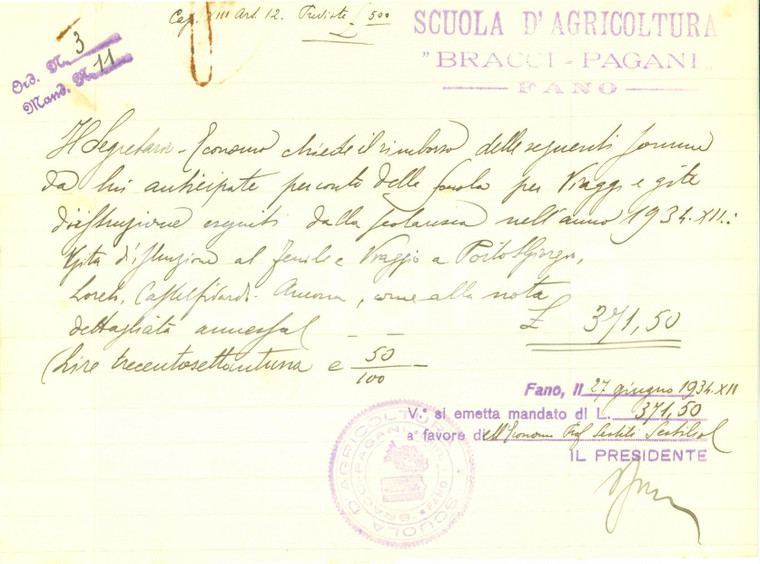 Cap. XIII Art. 12. Previste £ 500
Ord. N. 3
Mand. N. 11
SCUOLA D'AGRICOLTURA
"BRACCI-PAGANI"
FANO
Il Segretario-Economo chiede il rimborso delle seguenti somme
da lui anticipate per conto della Scuola per Viaggi e gite
d'istruzione eseguiti dalla scolaresca nell'anno 1934.XII.:
Gita d'istruzione al Fenile e Viaggio a Porto S. Giorgio,
Loreto, Castelfidardo - Ancona, come alla nota
dettagliata annessa £ 371,50
(Lire trecentosettantuna e 50/100
Fano, Il 27 giugno 1934.XII
V.° si emetta mandato di L. 371,50
a favore di Economo Prof.
IL PRESIDENTE
SCUOLA D'AGRICOLTURA
BRACCI-PAGANI
FANO